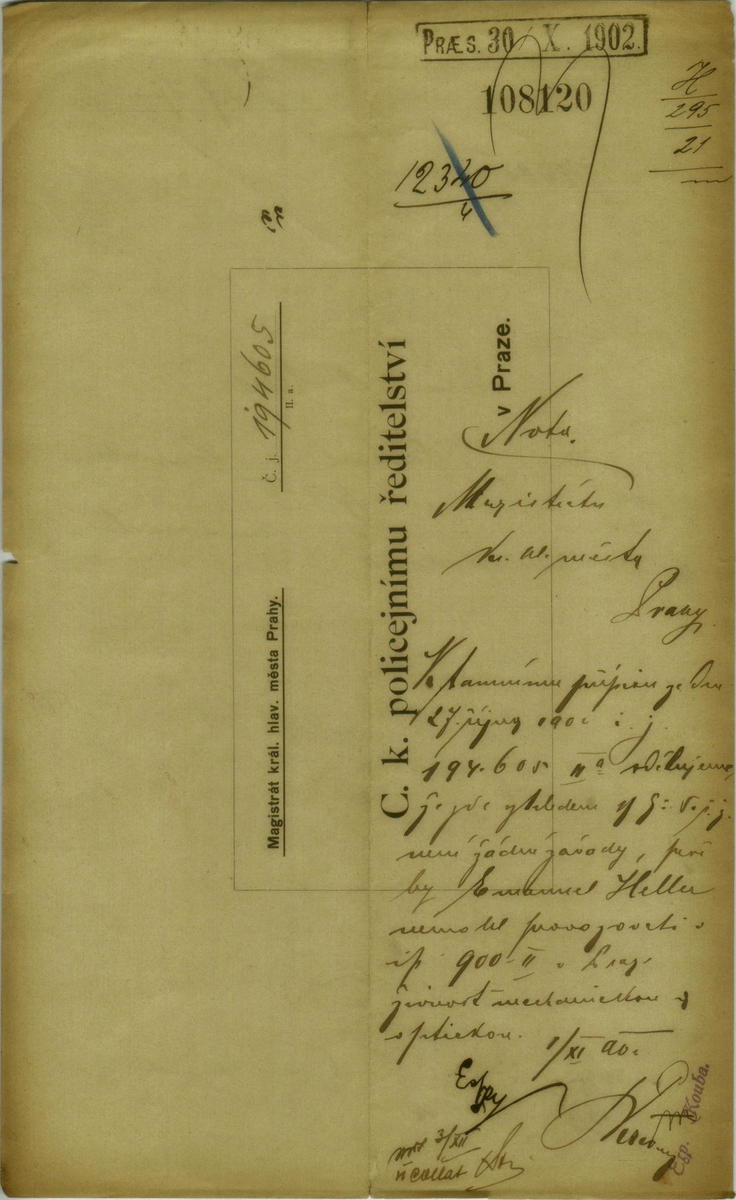 PRÆS. 30 X. 1902.
108120
H
295
21
12340
4
Č. j. 194605
II. a.
Magistrát král. hlav. města Prahy.
C. k. policejnímu ředitelství
v Praze.
Nota.
Magistrátu
kr. hl. města
Prahy
K tamnímu přípisu ze dne
27. října 1902 č. j.
194.605 II a sdělujeme,
že zde vzhledem
není žádné závady, proč
by Emanuel Heller
nemohl provozovati v
čp. 900-II v Praze
živnost mechanickou a
optickou.
1/XI 902
Exp.
3/XII
collat
Exp. Kouba.